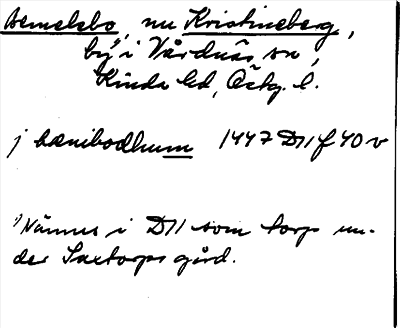 Hemelebo, nu Kristineberg,
by¹ i Vårdnäs sn,
Kinda hd, Östg. l.
j hænibodhum 1447 D11 f 40 v
¹⁾ Nämnes i D11 som torp un-
der Saxtorps gård.